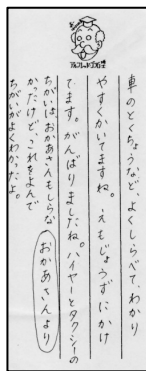 車のとくちょうなど、よくしらべて、わかり
やすくかいてますね。えもじょうずにかけ
てます。がんばりましたね。ハイヤーとタクシーの
ちがいは、おかあさんもしらな
かったけど、これをよんで
ちがいがよくわかったよ。
おかあさんより